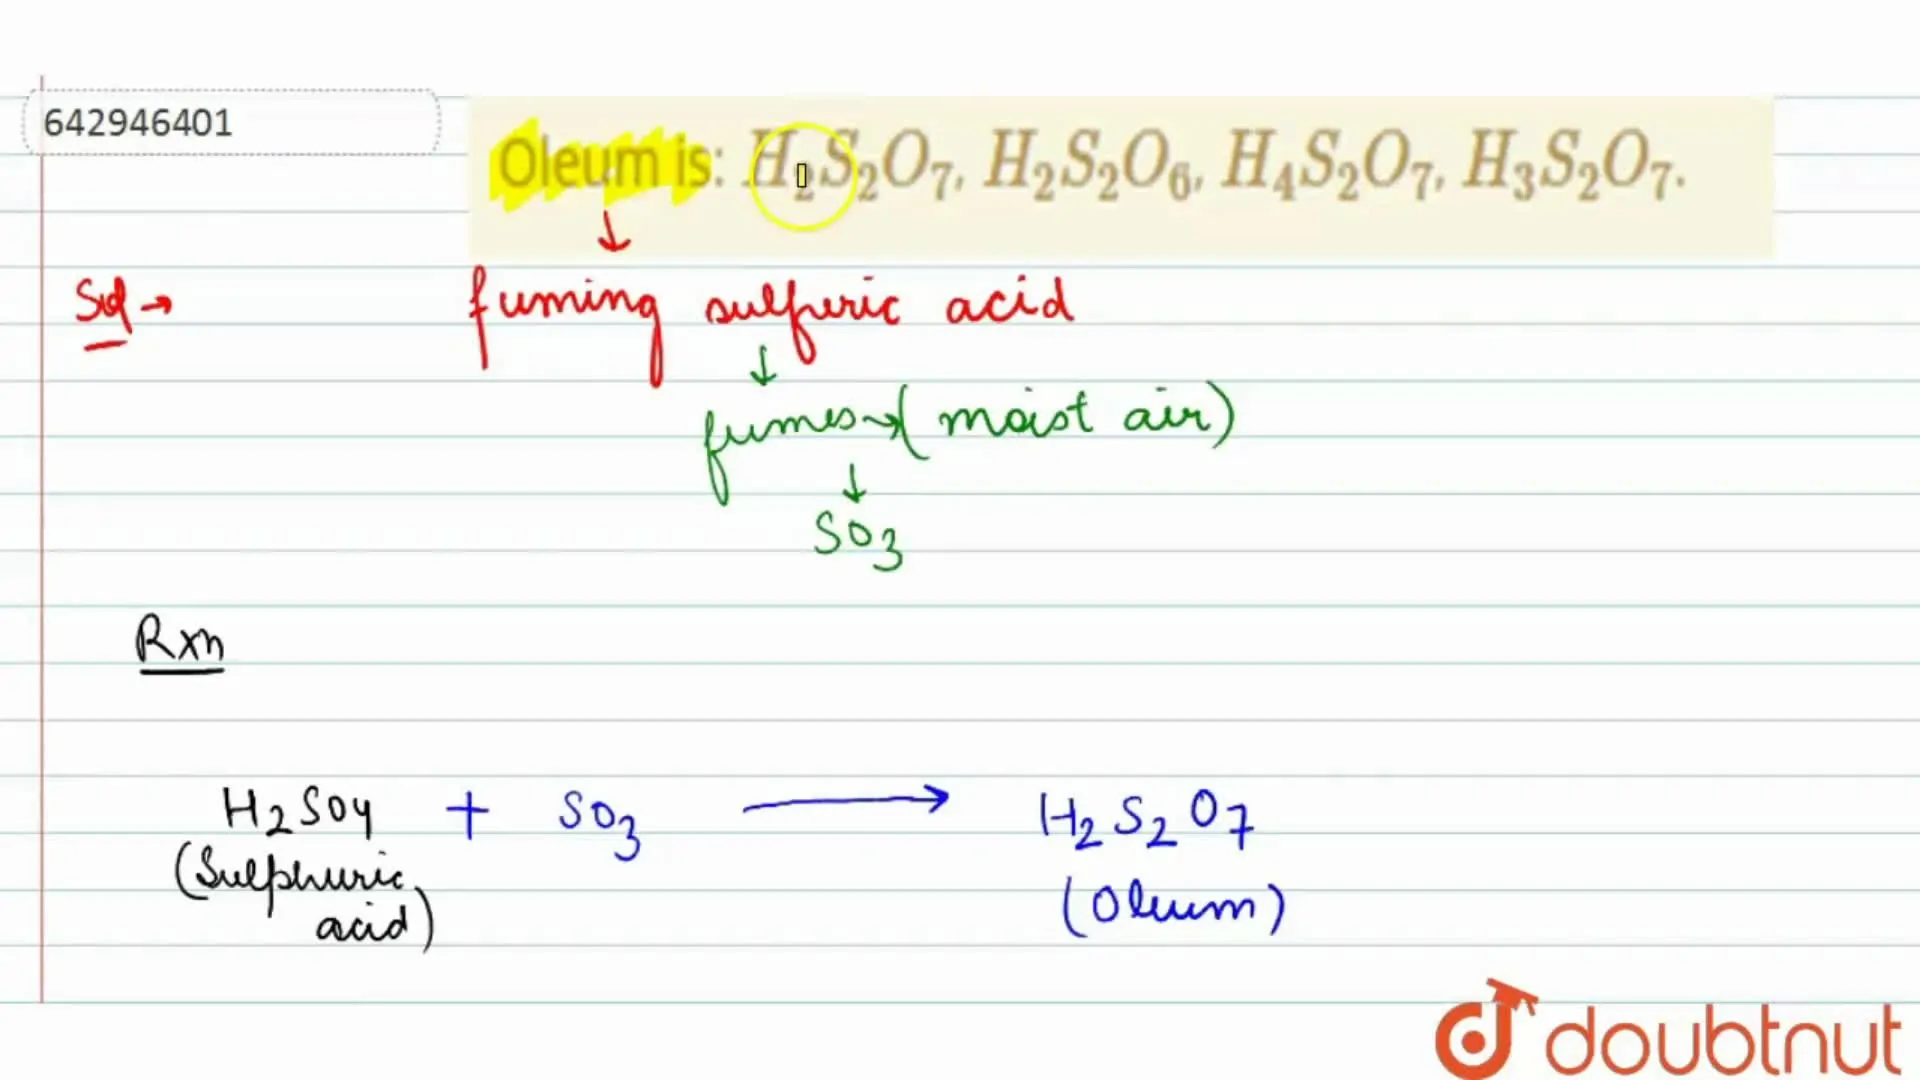 642946401
Oleum is: H₂S₂O₇, H₂S₂O₆, H₄S₂O₇, H₃S₂O₇.
↓
Sol → fuming sulfuric acid
↓
fumes → (moist air)
↓
SO₃
Rxn
H₂SO₄ + SO₃ ⟶ H₂S₂O₇
(Sulphuric acid) (Oleum)
doubtnut